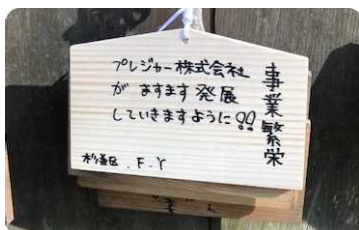 事業繁栄
プレジャー株式会社
がますます発展
していきますように!!
杉並区 . F. Y